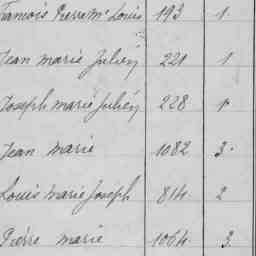 François Pierre Me Louis 193 1.
Jean marie Julien 221 1
Joseph marie Julien 228 1.
Jean marie 1082 3.
Louis Marie Joseph 814 2
Pierre marie 1064 3.